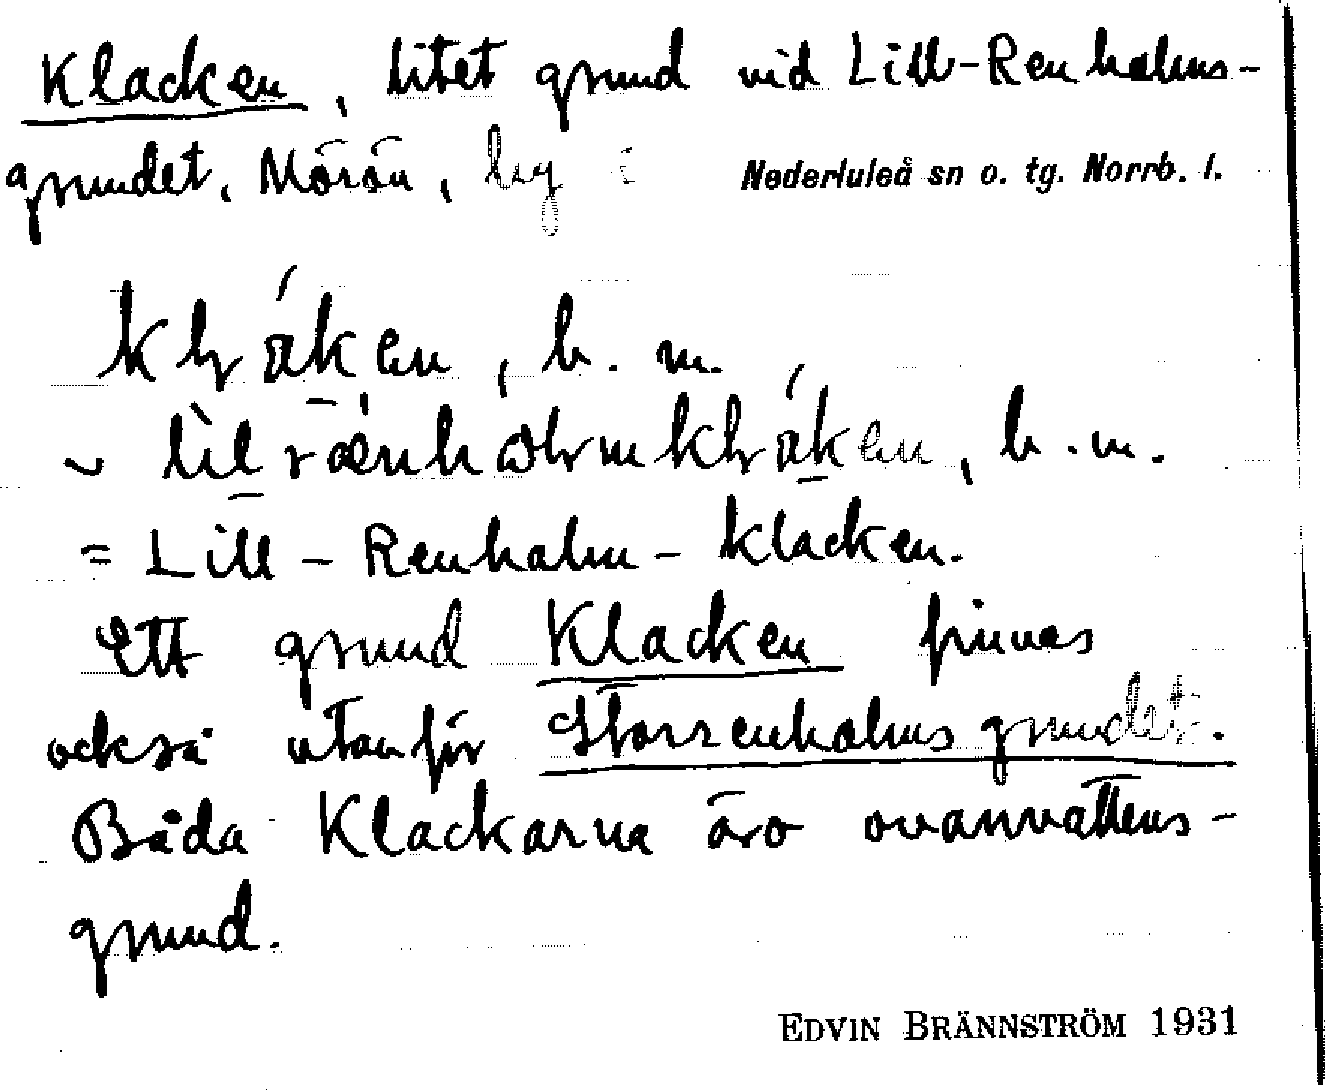 Klacken, litet grund vid Lill-Renholms-
grundet, Mörön, by i Nederluleå sn o. tg. Norrb. l.
b. m.
b. m.
= Lill-Renholm-klacken.
Ett grund Klacken finnes
också utanför Storrenholmsgrundet.
Båda Klackarna äro ovanvattens-
grund.
EDVIN BRÄNNSTRÖM 1931